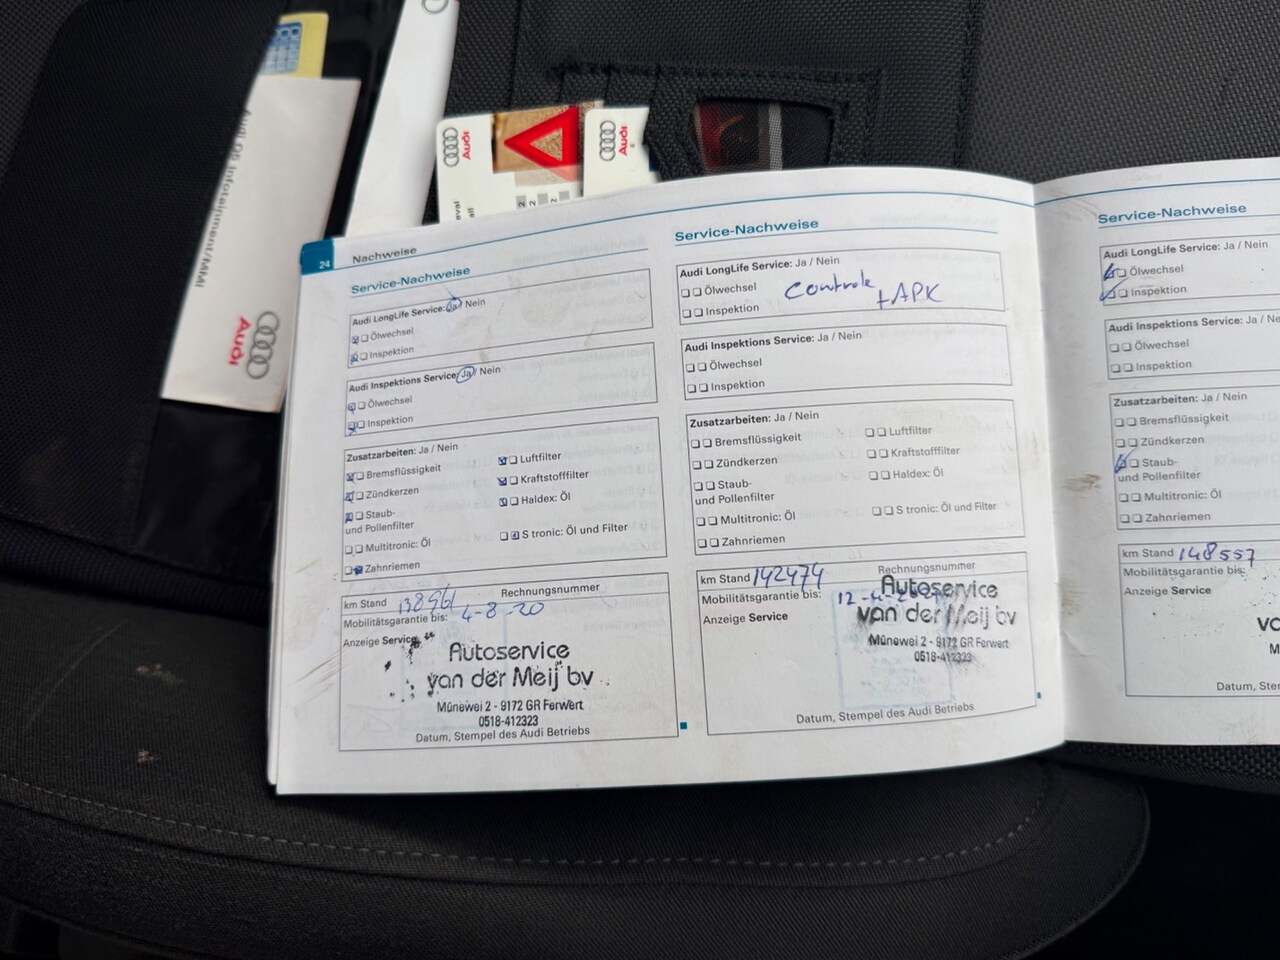 Audi Q5 Infotainment/MMI
Audi
Audi
Audi
24
Nachweise
Service-Nachweise
Audi LongLife Service: Ja / Nein
Ölwechsel
Inspektion
Audi Inspektions Service: Ja / Nein
Ölwechsel
Inspektion
Zusatzarbeiten: Ja / Nein
Bremsflüssigkeit
Zündkerzen
Staub-
und Pollenfilter
Multitronic: Öl
Zahnriemen
Luftfilter
Kraftstofffilter
Haldex: Öl
S tronic: Öl und Filter
km Stand 138961
Rechnungsnummer
Mobilitätsgarantie bis: 4-8-20
Anzeige Service
Autoservice
van der Meij bv
Mûnewei 2 - 9172 GR Ferwert
0518-412323
Datum, Stempel des Audi Betriebs
Service-Nachweise
Audi LongLife Service: Ja / Nein
Ölwechsel
Inspektion
Controle
+ APK
Audi Inspektions Service: Ja / Nein
Ölwechsel
Inspektion
Zusatzarbeiten: Ja / Nein
Bremsflüssigkeit
Zündkerzen
Staub-
und Pollenfilter
Multitronic: Öl
Zahnriemen
Luftfilter
Kraftstofffilter
Haldex: Öl
S tronic: Öl und Filter
km Stand 142474
Rechnungsnummer
Mobilitätsgarantie bis:
Anzeige Service
Autoservice
van der Meij bv
Mûnewei 2 - 9172 GR Ferwert
0518-412323
Datum, Stempel des Audi Betriebs
Service-Nachweise
Audi LongLife Service: Ja / Nein
Ölwechsel
Inspektion
Audi Inspektions Service: Ja / Ne
Ölwechsel
Inspektion
Zusatzarbeiten: Ja / Nein
Bremsflüssigkeit
Zündkerzen
Staub-
und Pollenfilter
Multitronic: Öl
Zahnriemen
km Stand 148557
Mobilitätsgarantie bis:
Anzeige Service
Datum, Ste